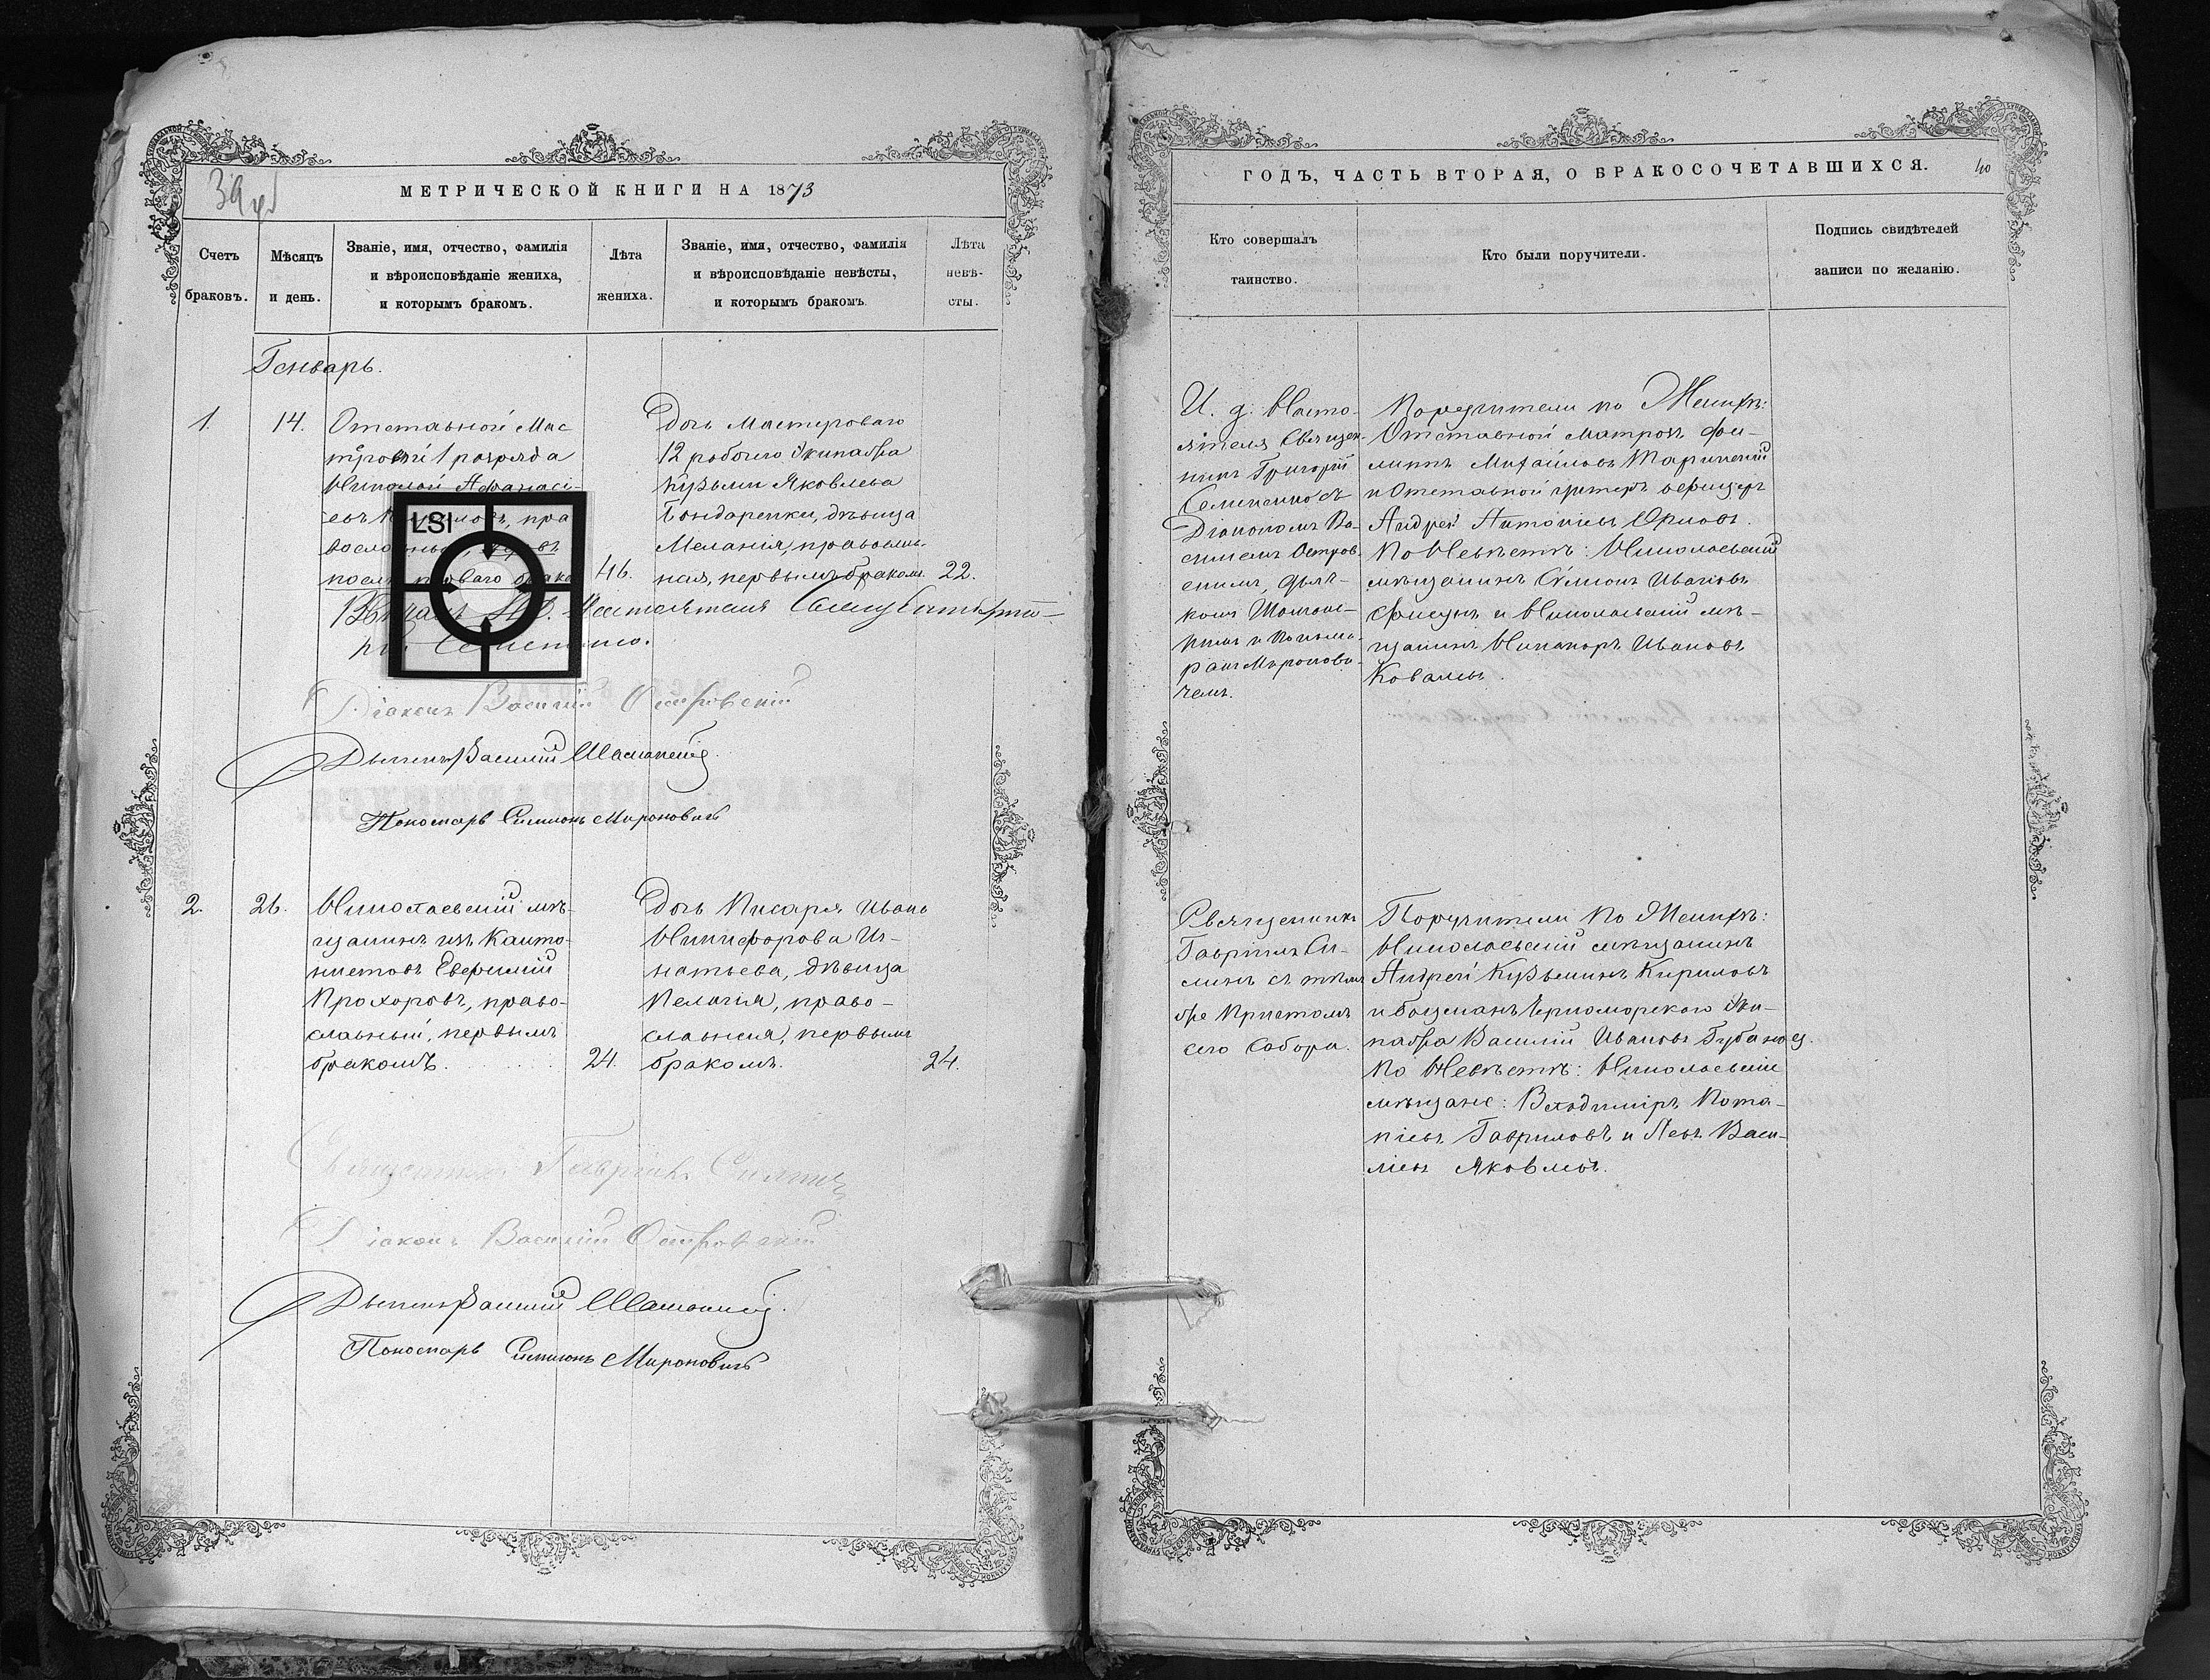 39
МЕТРИЧЕСКОЙ КНИГИ НА 1873
Счетъ
браковъ.
Мѣсяцъ
и день.
Званіе, имя, отчество, фамилія
и вѣроисповѣданіе жениха,
и которымъ бракомъ.
Лѣта
жениха.
Званіе, имя, отчество, фамилія
и вѣроисповѣданіе невѣсты,
и которымъ бракомъ
Лѣта
невѣ-
сты.
Генварь.
1.
14.
Отставной Мас
тровой 1 разряда
Николай Афанасі-
евъ пра
вдовъ
после перваго брака
46.
Дочь Мастероваго
12 рабочего Экипажа
Кузьмы Яковлева
Бондаренки, дѣвица
Меланія, православ-
ная, первымъ бракомъ.
22.
LSI
Діаконъ Василій Островскій
Дьячекъ Василій
Пономарь Симеонъ Мироновичъ
2.
26.
Николаевскій мѣ-
щанинъ изъ Канто-
нистовъ Евфимій
Прохоровъ, право-
славный, первымъ
бракомъ.
24.
Дочь Писаря Ивана
Никифорова Иг-
натьева, дѣвица
Пелагія, право-
славная, первымъ
бракомъ.
24.
Священникъ Гавріилъ
Діаконъ Василій Островскій
Дьячекъ Василій
Пономарь Симеонъ Мироновичъ
ГОДЪ, ЧАСТЬ ВТОРАЯ, О БРАКОСОЧЕТАВШИХСЯ.
40
Кто совершалъ
таинство.
Кто были поручители.
Подпись свидѣтелей
записи по желанію.
И. д. Насто-
ятеля Священ-
никъ Григорій
съ
Діакономъ Ва-
силіемъ Остров-
скимъ, Дья-
комъ
и Понома-
ремъ Миронови-
чемъ.
Поручители по Женихѣ:
Отставной матросъ Фи-
липпъ Михайловъ
и Отставной унтеръ офицеръ
Андрей Антоніевъ Орловъ.
По Невѣстѣ: Николаевскій
мѣщанинъ Симонъ Ивановъ
и Николаевскій мѣ-
щанинъ Никаноръ Ивановъ
Ковалевъ.
Священникъ
Гавріилъ Си-
съ тѣмъ
же Причтомъ
сего Собора.
Поручители по Женихѣ:
Николаевскій мѣщанинъ
Андрей Кузьминъ Кириловъ
и Боцманъ Черноморскаго Эки-
пажа Василій Ивановъ
По Невѣстѣ: Николаевскіе
мѣщане: Владиміръ Пота-
піевъ Гавриловъ и Левъ Васи-
ліевъ Яковлевъ.